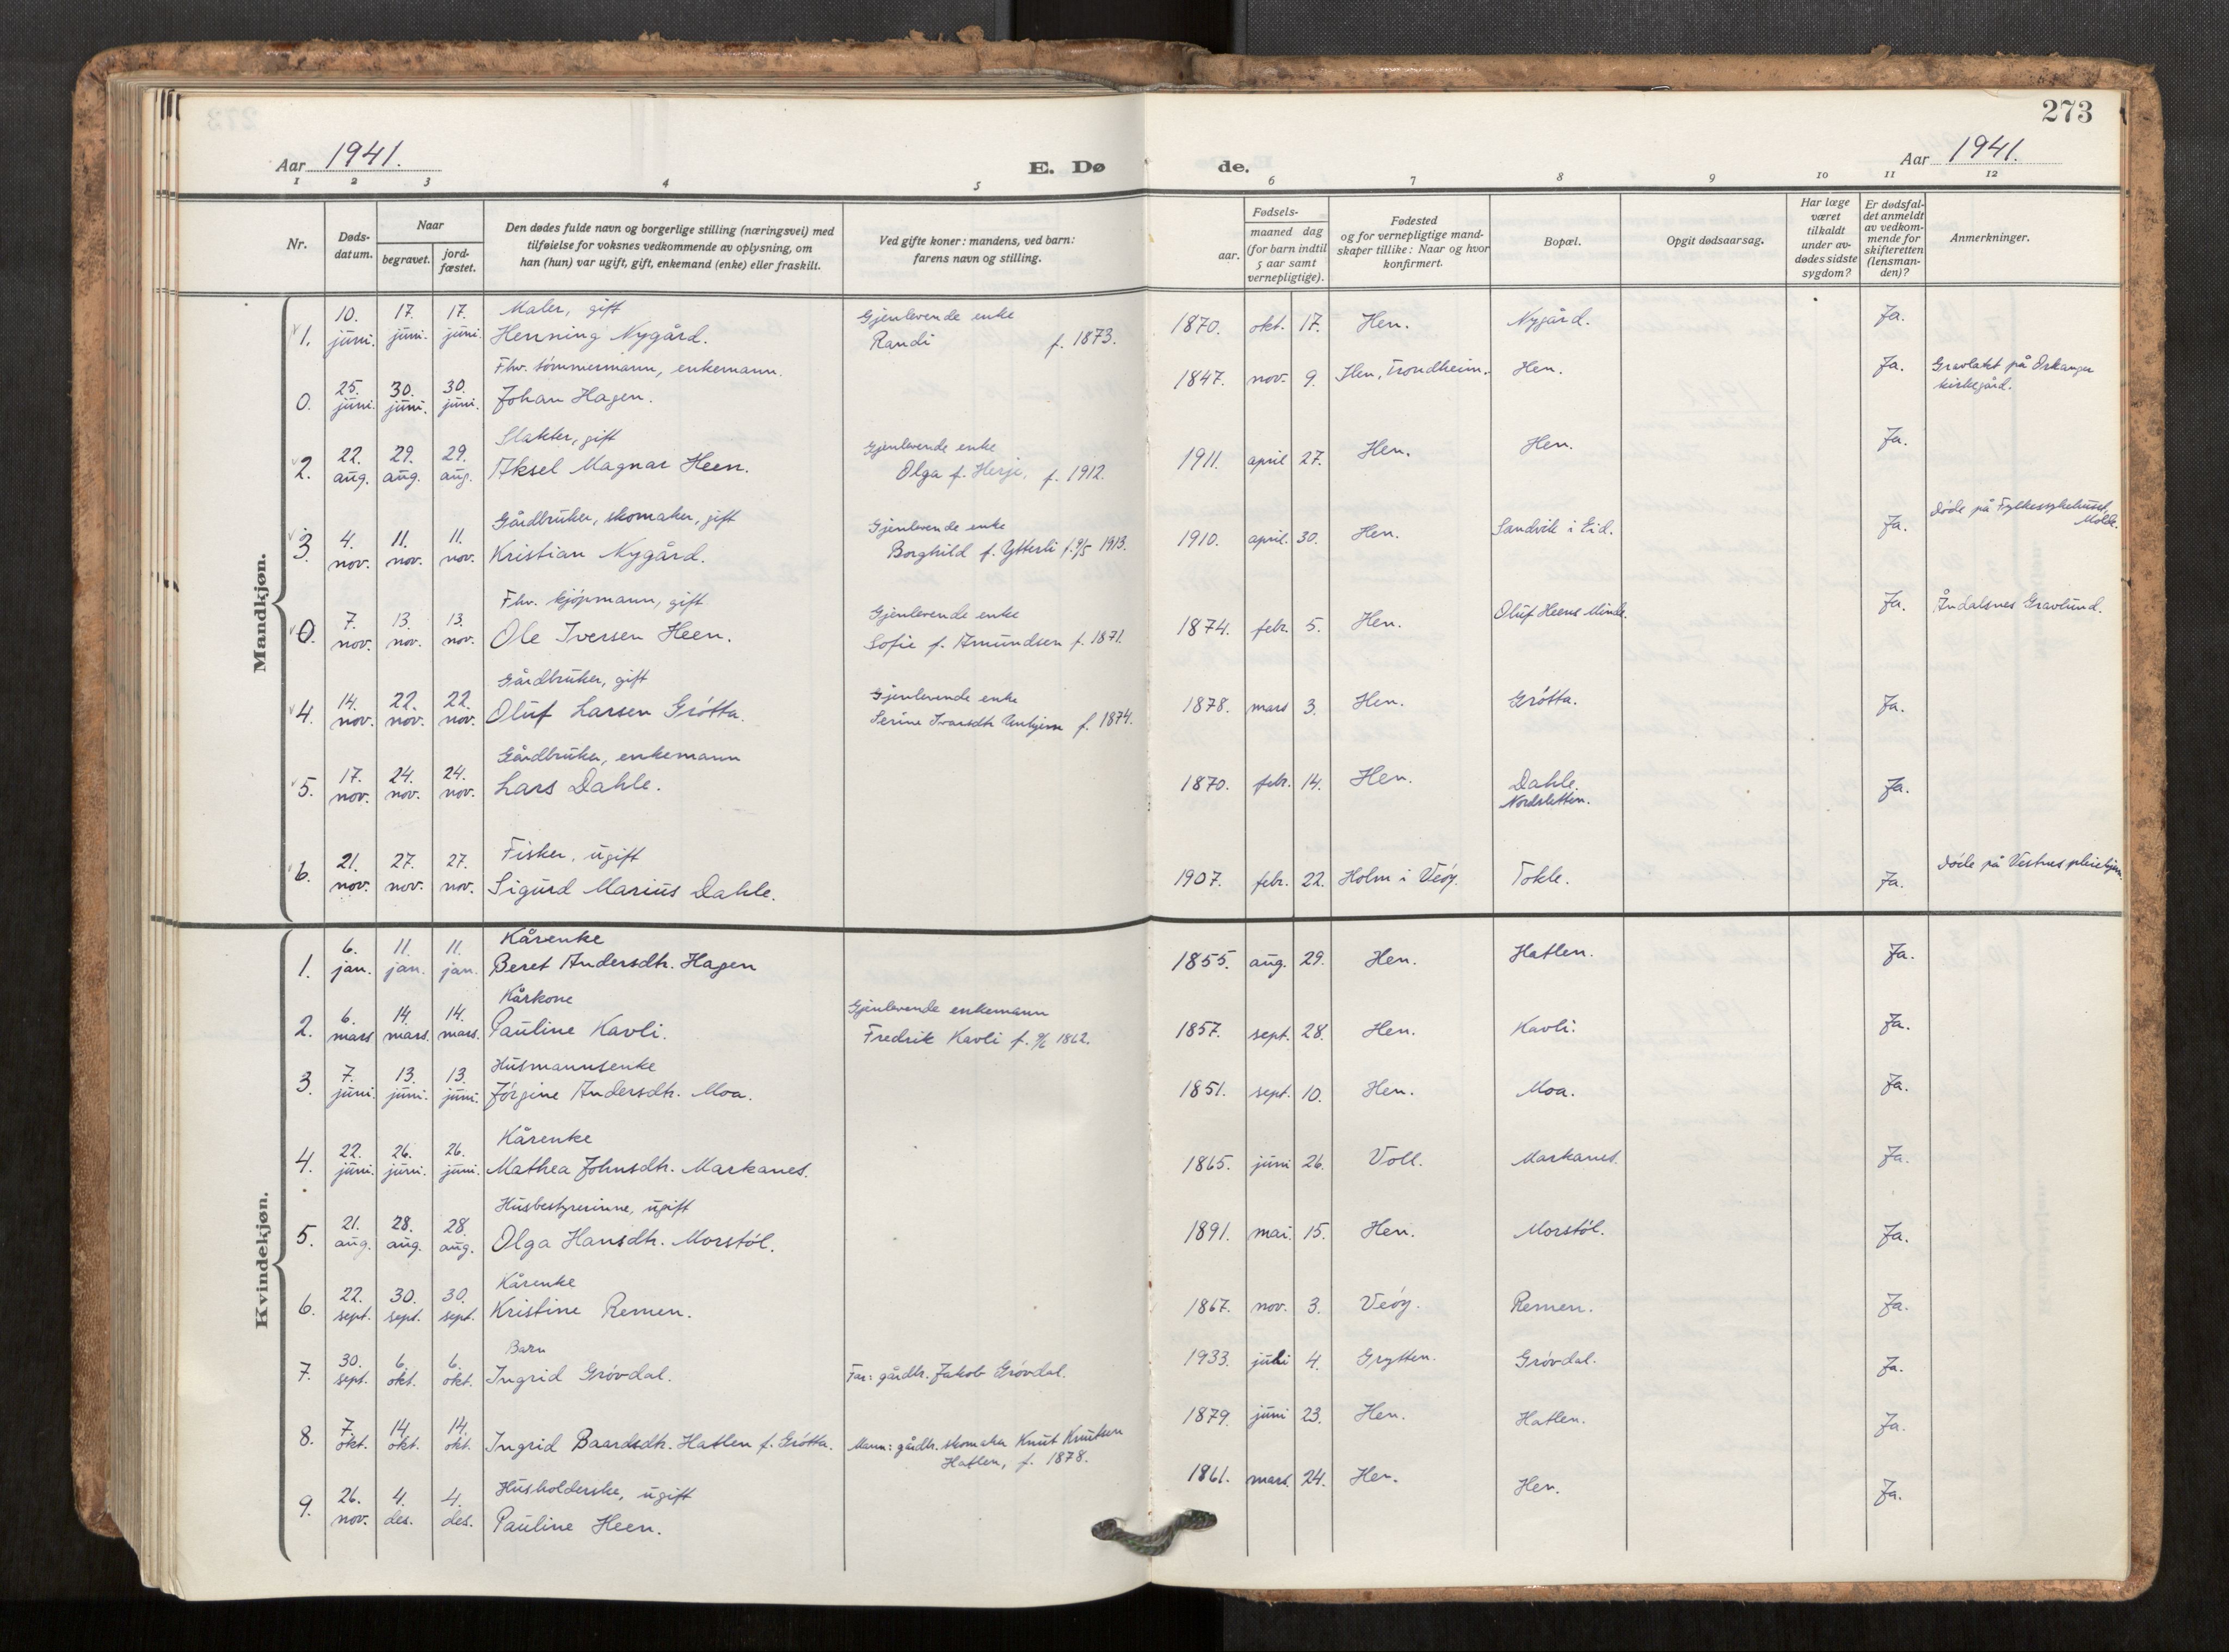 273
Aar 1941.
E. Dø
de.
Aar 1941.
1 2 3 4 5 6 7 8 9 10 11 12
Nr.
Døds-
datum.
Naar
begravet.
jord-
fæstet.
Den dødes fulde navn og borgerlige stilling (næringsvei) med
tilføielse for voksnes vedkommende av oplysning, om
han (hun) var ugift, gift, enkemand (enke) eller fraskilt.
Ved gifte koner: mandens, ved barn:
farens navn og stilling.
Fødsels-
aar.
maaned dag
(for barn indtil
5 aar samt
vernepligtige).
Fødested
og for vernepligtige mand-
skaper tillike: Naar og hvor
konfirmert.
Bopæl.
Opgit dødsaarsag.
Har læge
været
tilkaldt
under av-
dødes sidste
sygdom?
Er dødsfal-
det anmeldt
av vedkom-
mende for
skifteretten
(lensman-
den)?
Anmerkninger.
Mandkjøn.
10. 17. 17. Maler, gift Gjenlevende enke
1. juni. juni. juni. Henning Nygård. Randi f. 1873. 1870. okt. 17. Hen. Nygård. Ja.
Fhv. tømmermann, enkemann.
0. 25. juni. 30. juni. 30. juni. Johan Hagen. 1847. nov. 9. Ilen, Trondheim. Hen. Ja. Gravlakt på Orkanger
kirkegård.
Slakter, gift Gjenlevende enke
2. 22. aug. 29. aug. 29. aug. Aksel Magnar Heen. Olga f. Herje, f. 1912. 1911. april 27. Hen. Hen. Ja.
Gårdbruker, skomaker, gift Gjenlevende enke
3. 4. nov. 11. nov. 11. nov. Kristian Nygård. Borghild f. Ytterli f. 9/5 1913. 1910. april. 30. Hen. Sandvik i Eid. Ja. Døde på Fylkessykehuset,
Molde.
Fhv. kjøpmann, gift Gjenlevende enke
0. 7. nov. 13. nov. 13. nov. Ole Iversen Heen. Sofie f. Amundsen f. 1871. 1874. febr. 5. Hen. Oluf Heens Minde. Ja. Åndalsnes Gravlund.
Gårdbruker, gift Gjenlevende enke
4. 14. nov. 22. nov. 22. nov. Oluf Larsen Grøtta. Serine Ivarsdtr. f. 1874. 1878. mars 3. Hen. Grøtta. Ja.
Gårdbruker, enkemann
5. 17. nov. 24. nov. 24. nov. Lars Dahle. 1870. febr. 14. Hen. Dahle.
Nordsletten. Ja.
Fisker, ugift
6. 21. nov. 27. nov. 27. nov. Sigurd Marius Dahle. 1907. febr. 22. Holm i Veøy. Tokle. Ja. Døde på Vestnes pleiehjem.
Kvindekjøn.
Kårenke
1. 6. jan. 11. jan. 11. jan. Beret Andersdtr. Hagen 1855. aug. 29. Hen. Hatlen. Ja.
Kårkone Gjenlevende enkemann
2. 6. mars 14. mars. 14. mars. Pauline Kavli. Fredrik Kavli f. 1862. 1857. sept. 28. Hen. Kavli. Ja.
Husmannsenke
3. 7. juni. 13. juni. 13. juni. Jørgine Andersdtr. Moa. 1851. sept. 10. Hen. Moa. Ja.
Kårenke
4. 22. juni. 26. juni. 26. juni. Mathea Johnsdtr. Markanes. 1865. juni 26. Voll. Markanes. Ja.
Husbestyrerinne, ugift
5. 21. aug. 28. aug. 28. aug. Olga Hansdtr. Morstøl. 1891. mai. 15. Hen. Morstøl. Ja.
Kårenke
6. 22. sept. 30. sept. 30. sept. Kristine Remen. 1867. nov. 3. Veøy. Remen. Ja.
Barn
7. 30. sept. 6. okt. 6. okt. Ingrid Grøvdal. Far: gårdbr. Jakob Grøvdal. 1933. juli 4. Grytten. Grøvdal. Ja.
8. 7. okt. 14. okt. 14. okt. Ingrid Baardsdtr. Hatlen f. Grøtta. Mann: gårdbr. skomaker Knut Knutsen
Hatlen, f. 1878. 1879. juni 23. Hen. Hatlen. Ja.
Husholderske, ugift
9. 26. nov. 4. des. 4. des. Pauline Heen. 1861. mars. 24. Hen. Hen. Ja.